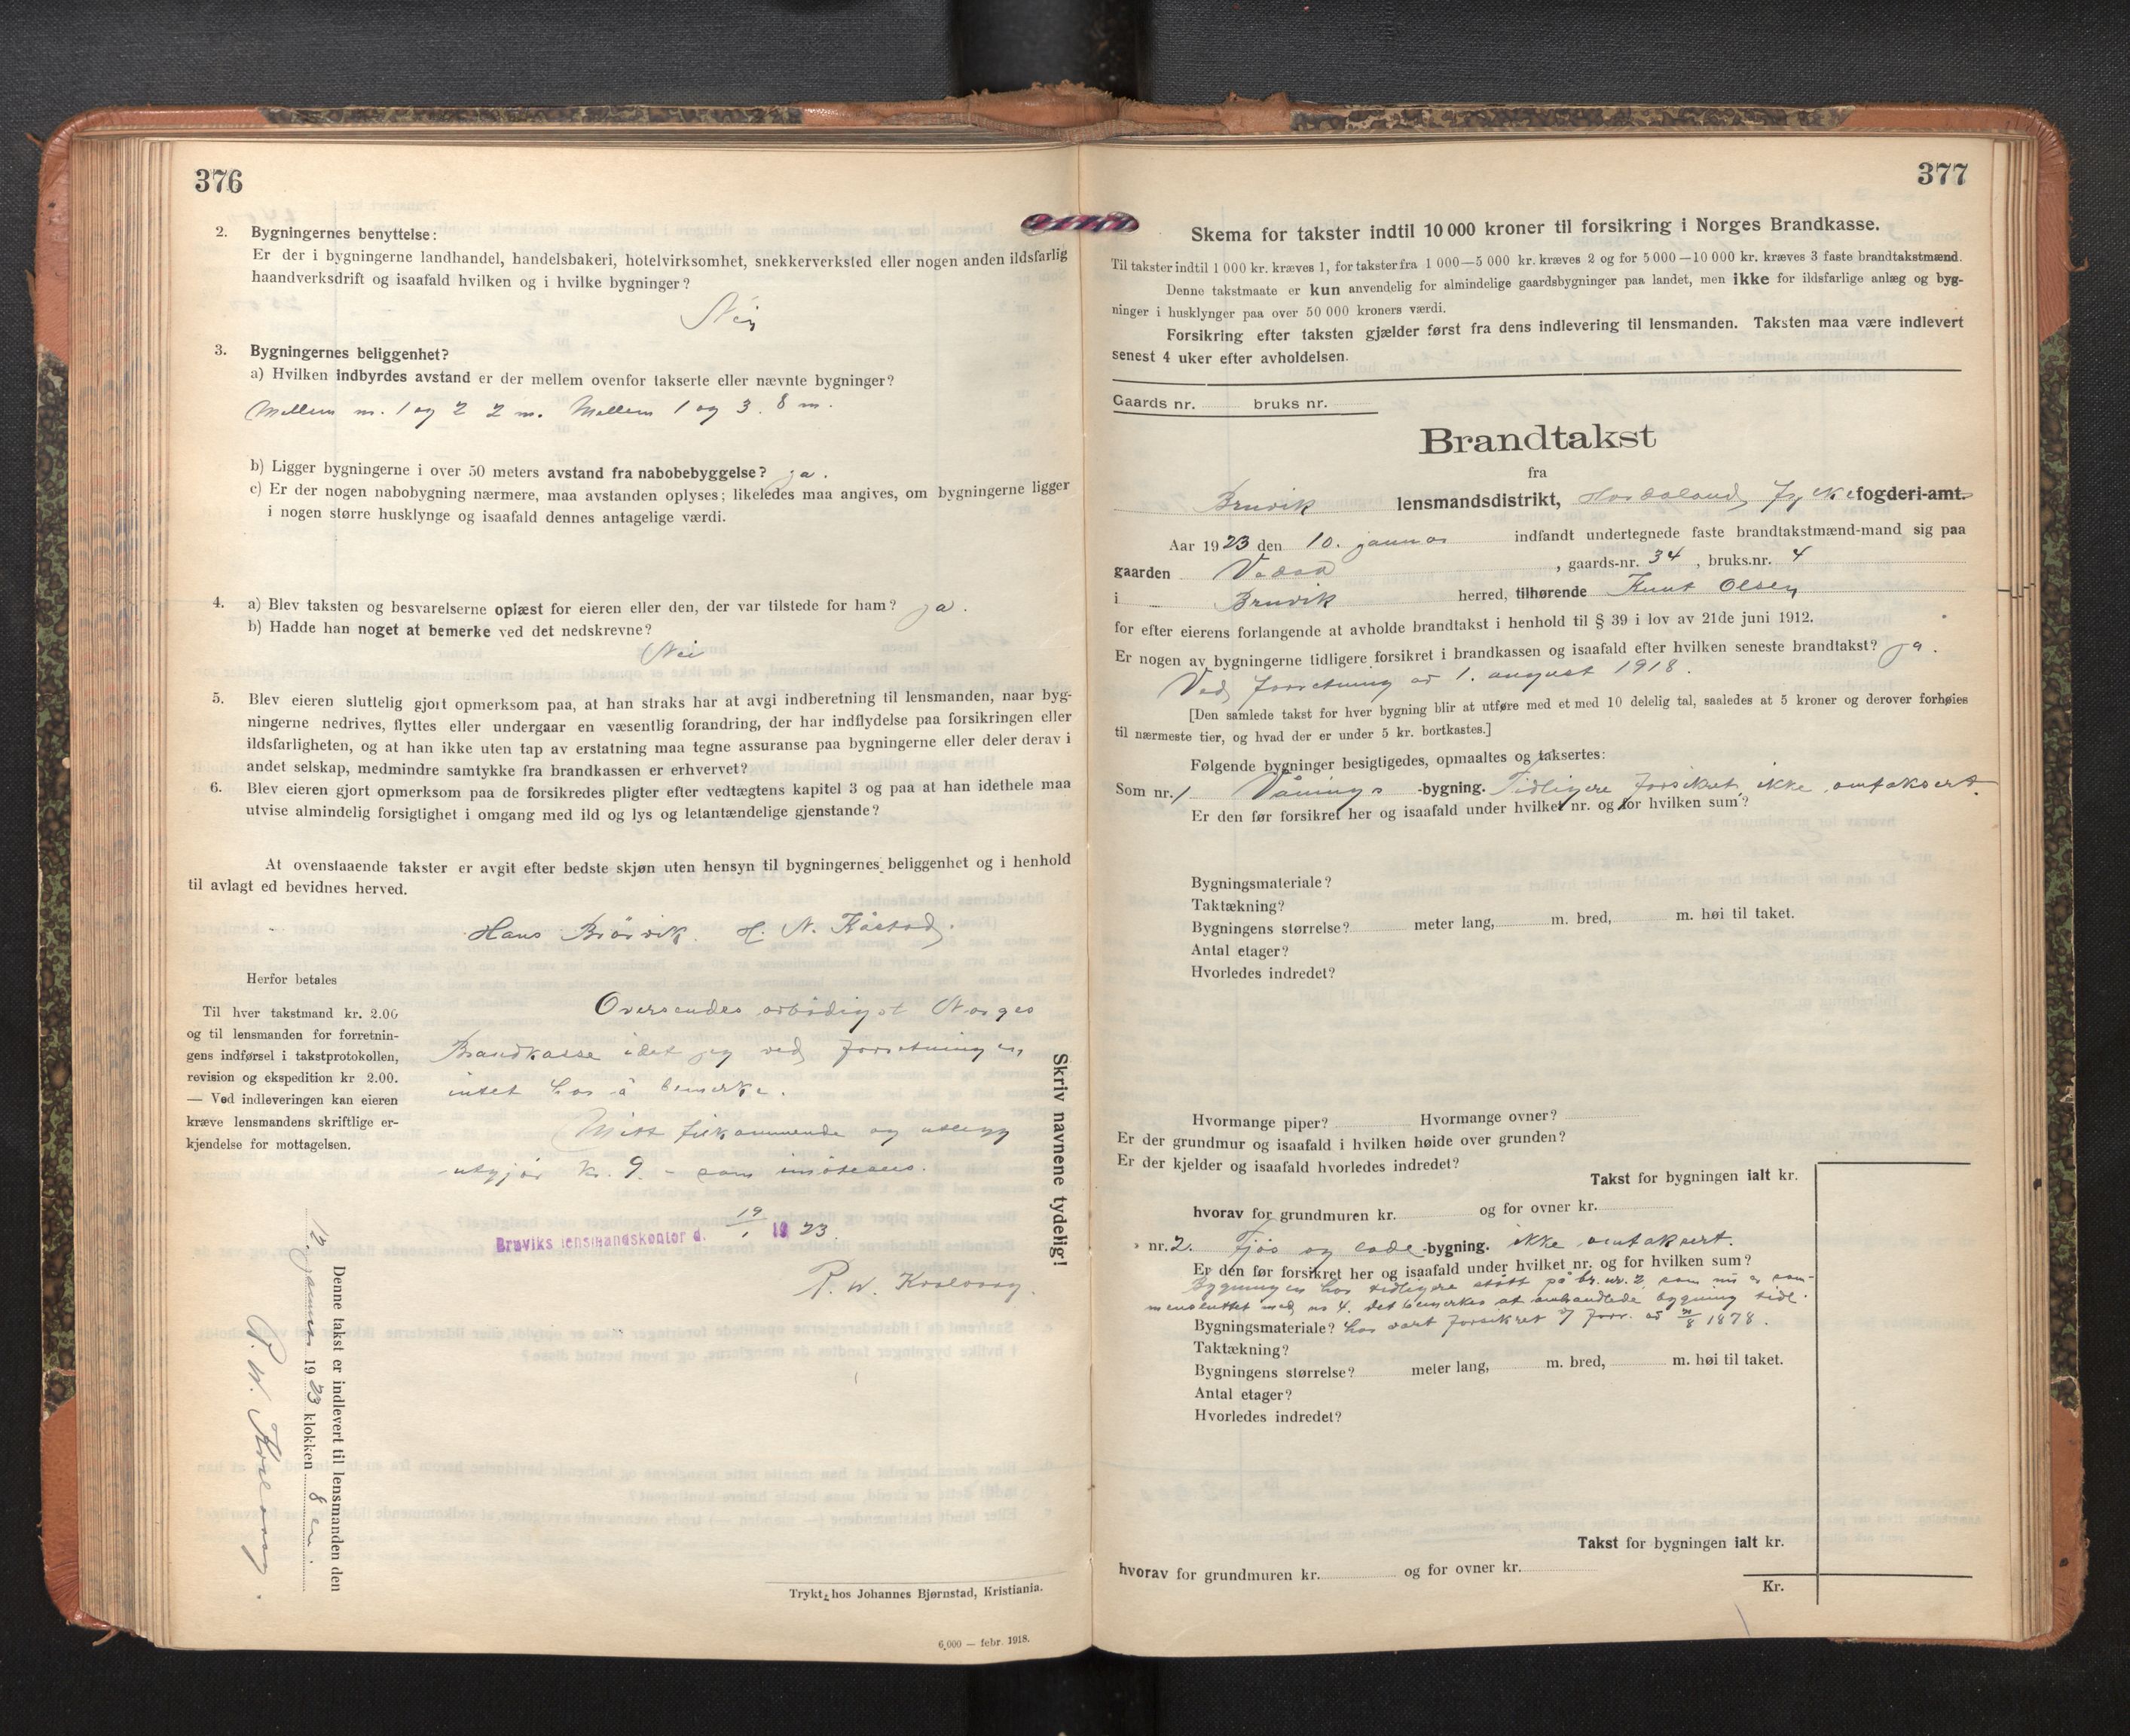 376
2. Bygningernes benyttelse:
Er der i bygningerne landhandel, handelsbakeri, hotelvirksomhet, snekkerverksted eller nogen anden ildsfarlig
haandverksdrift og isaafald hvilken og i hvilke bygninger?
Nei
3. Bygningernes beliggenhet?
a) Hvilken indbyrdes avstand er der mellem ovenfor takserte eller nævnte bygninger?
Mellem nr. 1 og 2 2 m. Mellem 1 og 3. 8 m.
b) Ligger bygningerne i over 50 meters avstand fra nabobebyggelse? ja.
c) Er der nogen nabobygning nærmere, maa avstanden oplyses; likeledes maa angives, om bygningerne ligger
i nogen større husklynge og isaafald dennes antagelige værdi.
4. a) Blev taksten og besvarelserne oplæst for eieren eller den, der var tilstede for ham? ja.
b) Hadde han noget at bemerke ved det nedskrevne?
Nei
5. Blev eieren sluttelig gjort opmerksom paa, at han straks har at avgi indberetning til lensmanden, naar byg-
ningerne nedrives, flyttes eller undergaar en væsentlig forandring, der har indflydelse paa forsikringen eller
ildsfarligheten, og at han ikke uten tap av erstatning maa tegne assuranse paa bygningerne eller deler derav i
andet selskap, medmindre samtykke fra brandkassen er erhvervet?
6. Blev eieren gjort opmerksom paa de forsikredes pligter efter vedtægtens kapitel 3 og paa at han idethele maa
utvise almindelig forsiglighet i omgang med ild og lys og letantændelige gjenstande?
At ovenstaaende takster er avgit efter bedste skjøn uten hensyn til bygningernes beliggenhet og i henhold
til avlagt ed bevidnes herved.
Hans Brørvik. H. N. Kåstad.
Herfor betales
Til hver takstmand kr. 2.00
og til lensmanden for forretnin-
gens indførsel i takstprotokollen,
revision og ekspedition kr 2.00.
— Ved indleveringen kan eieren
kræve lensmandens skriftlige er-
kjendelse for mottagelsen.
Oversendes ærbødigst Norges
Brandkasse idet jeg ved forretningen
intet har å bemerke.
Mitt tilkommende og utlegg
utgjør kr. 9.- som
Bruviks lensmandskontor d. 19/1 1923.
Skriv navnene tydelig!
Denne takst er indlevert til lensmanden den
12. januar 1923 klokken 8 em.
Trykt hos Johannes Bjørnstad, Kristiania.
6.000 — febr. 1918.
377
Skema for takster indtil 10 000 kroner til forsikring i Norges Brandkasse.
Til takster indtil 1 000 kr. kræves 1, for takster fra 1 000—5 000 kr. kræves 2 og for 5 000—10 000 kr. kræves 3 faste brandtakstmænd.
Denne takstmaate er kun anvendelig for almindelige gaardsbygninger paa landet, men ikke for ildsfarlige anlæg og byg-
ninger i husklynger paa over 50 000 kroners værdi.
Forsikring efter taksten gjælder først fra dens indlevering til lensmanden. Taksten maa være indlevert
senest 4 uker efter avholdelsen.
Gaards nr. bruks nr.
Brandtakst
fra
Bruvik lensmandsdistrikt, Hordaland fylke fogderi-amt.
Aar 1923 den 10. januar indfandt undertegnede faste brandtakstmænd-mand sig paa
gaarden , gaards-nr. 34, bruks.nr. 4
i Bruvik herred, tilhørende Knut Olsen
for efter eierens forlangende at avholde brandtakst i henhold til § 39 i lov av 21de juni 1912.
Er nogen av bygningerne tidligere forsikret i brandkassen og isaafald efter hvilken seneste brandtakst? ja.
Ved forretning av 1. august 1918.
[Den samlede takst for hver bygning blir at utføre med et med 10 delelig tal, saaledes at 5 kroner og derover forhøies
til nærmeste tier, og hvad der er under 5 kr. bortkastes.]
Følgende bygninger besigtigedes, opmaaltes og taksertes:
Som nr. 1 Vånings -bygning. Tidligere forsikret, ikke omtaksert.
Er den før forsikret her og isaafald under hvilket nr. og for hvilken sum?
Bygningsmateriale?
Taktækning?
Bygningens størrelse? meter lang, m. bred, m. høi til taket.
Antal etager?
Hvorledes indredet?
Hvormange piper? Hvormange ovner?
Er der grundmur og isaafald i hvilken høide over grunden?
Er der kjelder og isaafald hvorledes indredet?
Takst for bygningen ialt kr.
hvorav for grundmuren kr. og for ovner kr.
» nr. 2. Fjøs og lade -bygning. ikke omtaksert.
Er den før forsikret her og isaafald under hvilket nr. og for hvilken sum?
Bygningen har tidligere stått på br. nr. 2, som nu er sam-
mensluttet med nr 4. Det bemerkes at omhandlede bygning tidl.
Bygningsmateriale? har vært forsikret v/ forr. av 21/8 1878.
Taktækning?
Bygningens størrelse? meter lang, m. bred, m. høi til taket.
Antal etager?
Hvorledes indredet?
Takst for bygningen ialt kr.
hvorav for grundmuren kr. og for ovner kr.
Kr.